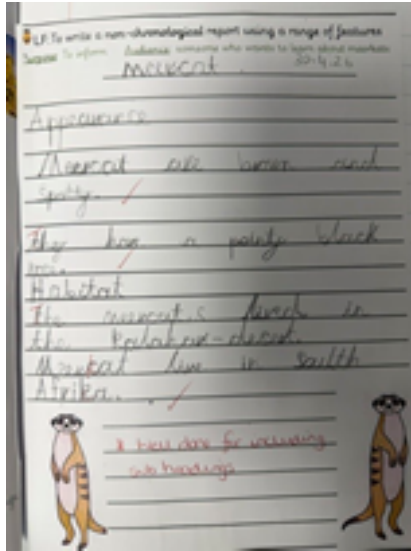 LP: To write a non-chronological report using a range of features
Purpose: To inform Audience: someone who wants to learn about meerkats
30.4.26
Meercat.
Appearance
Meercat are brown and
spotty.
They has a pointy black
Habitat
The meercat.s lived in
the Kalahar-desert.
Meerkat live in South
Afrika.
* Well done for including
sub headings